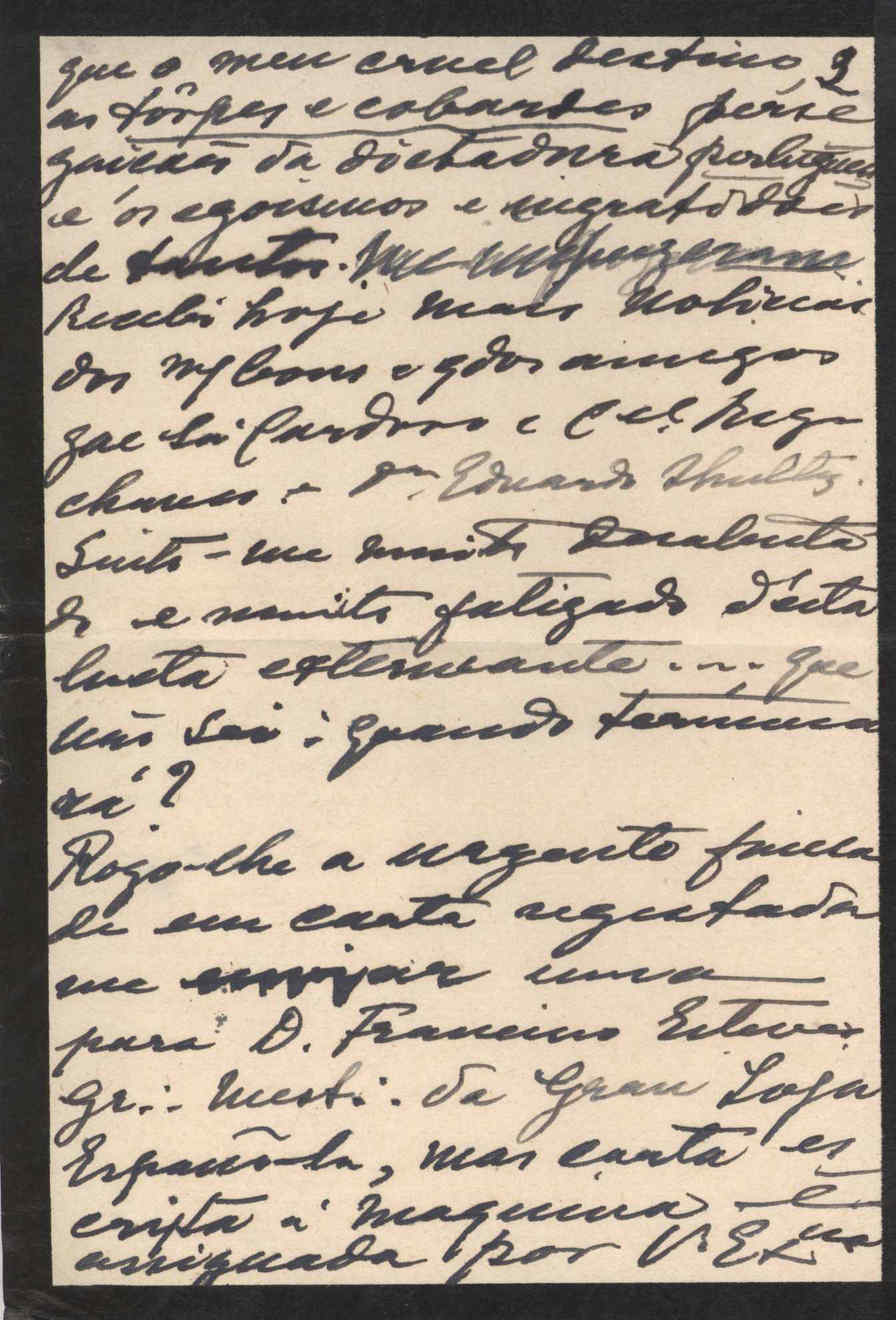 que o meu cruel destino, 9
as tôrpes e cobardes perse
guicões da dictadura portuguesa
e os egoismos e ingratidões
de tantos.
Recebi hoje mais noticias
dos mtos bons e qdos amigos
que Sá Cardoso e Cel. Hel
chaves. e Dr. Eduardo Shultz.
Sinto-me muito desalenta
do e muito fatigado d'esta
lucta exterminante.... que
não sei: quando termina
rá?
Rogo-lhe a urgente fineza
de em carta registada
me enviar uma
para D. Francisco Esteva
Gr∴ Mest∴ da Gran Loja
Española, mas carta es
crita á maquina e
assignada por V. Exma